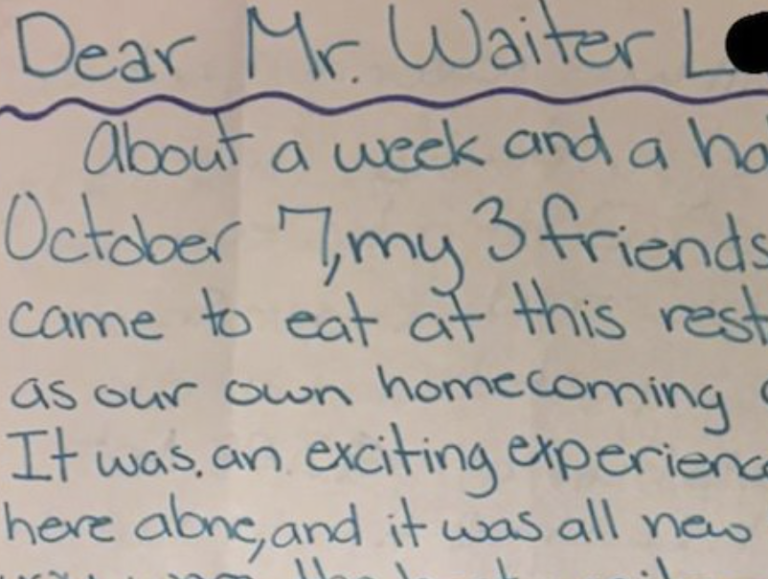 Dear Mr. Waiter L
About a week and a ha
October 7, my 3 friends
came to eat at this rest
as our own homecoming
It was. an exciting experienc
here alone, and it was all new